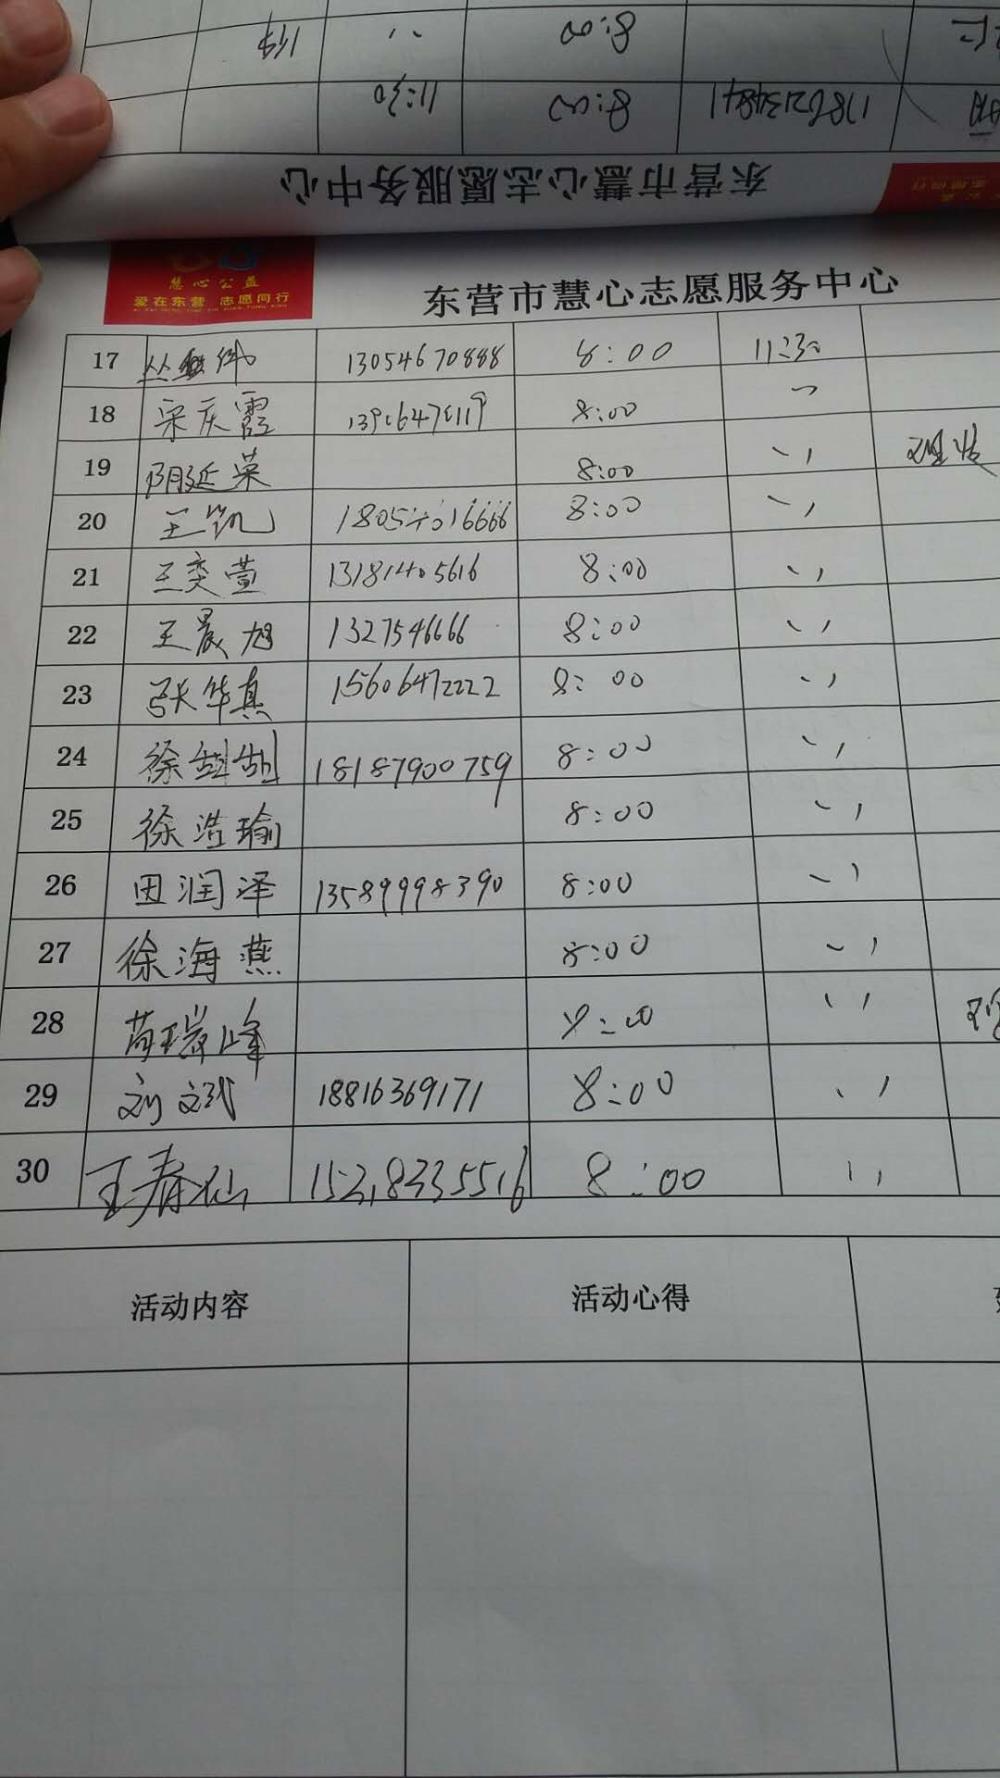 1件 8:00
11:30 8:00 17862134841
东营市慧心志愿服务中心
慧心公益
爱在东营 志愿同行
东营市慧心志愿服务中心
17 丛 13054670888 8:00 11:30
18 宋庆霞 13906470119 8:00 〃
19 阴延荣 8:00 〃 理发
20 王凯 18054016666 8:00 〃
21 王奕萱 13181405616 8:00 〃
22 王晨旭 1327546666 8:00 〃
23 张华真 15606472222 8:00 〃
24 徐 18187900759 8:00 〃
25 徐浩瑜 8:00 〃
26 田润泽 13589998390 8:00 〃
27 徐海燕 8:00 〃
28 苟瑞峰 8:00 〃
29 刘文武 18816369171 8:00 〃
30 王春仙 15218335516 8:00 〃
活动内容 活动心得